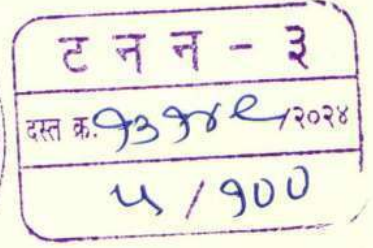 ट न न - ३
दस्त क्र. १३१४९/२०२४
५ / १००